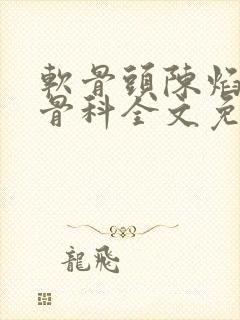 軟骨頭陳焰
骨科全文免
龍飛